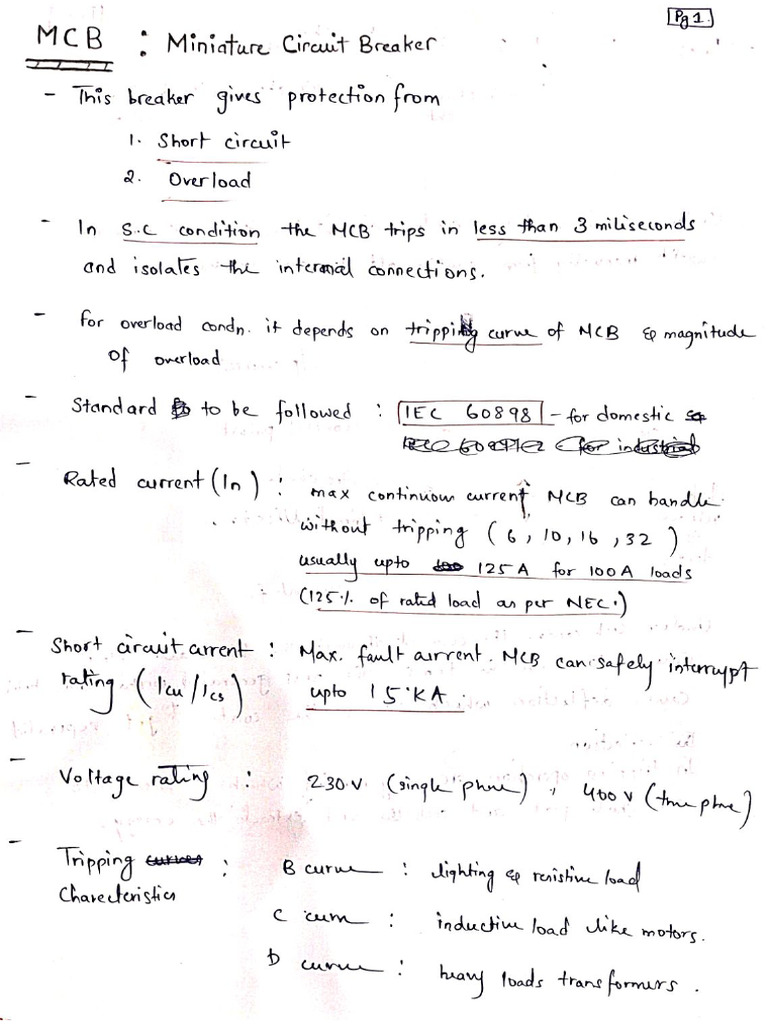 Pg 1
MCB : Miniature Circuit Breaker
- This breaker gives protection from
1. Short circuit
2. Overload
- In S.C condition the MCB trips in less than 3 miliseconds
and isolates the internal connections.
- for overload condn. it depends on tripping curve of MCB & magnitude
of overload
- Standard to be followed : IEC 60898 - for domestic
- Rated current (In) : max continuous current MCB can handle
without tripping (6, 10, 16, 32)
usually upto 125A for 100A loads
(125% of rated load as per NEC.)
- Short circuit current : Max. fault current MCB can safely interrupt
rating (Icu/Ics) upto 15 KA.
- Voltage rating : 230 v (single phase), 400 v (three phase)
- Tripping curves : B curve : lighting & resistive load
Charecteristics
C curve : inductive load like motors.
D curve : heavy loads transformers.